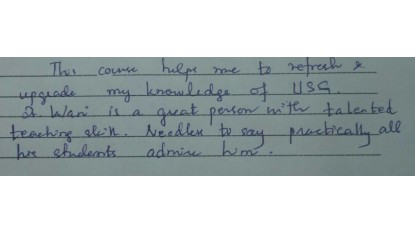 This course helps me to refresh &
upgrade my knowledge of USG.
Dr. Wani is a great person with talented
teaching skill. Needless to say practically all
his students admire him.